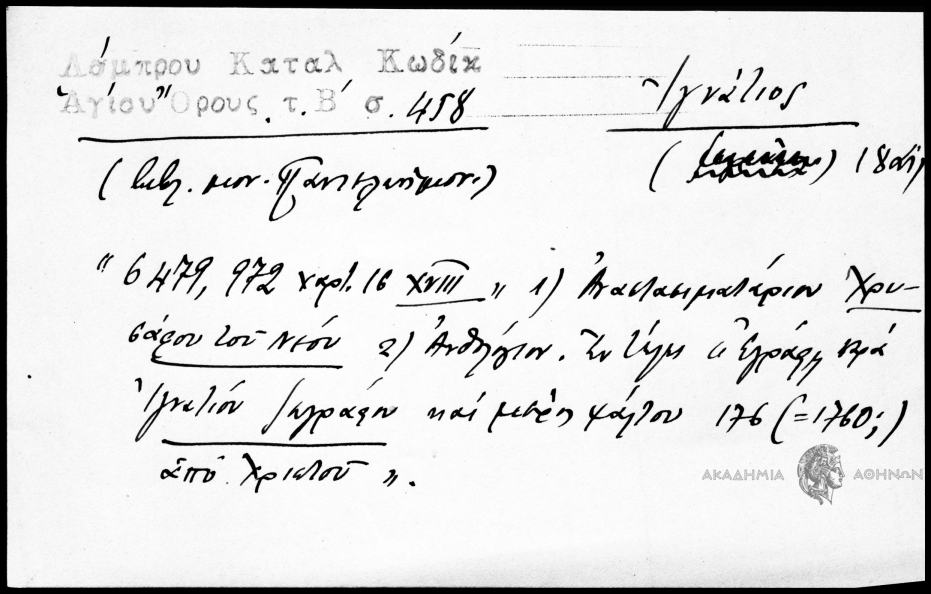 Λάμπρου Καταλ Κωδίκ
Ἁγίου Ὄρους τ. Β΄ σ. 458
Ἰγνάτιος
(βιβλ. μον. Παντελεήμον.)
( ) 18
" 6479, 972 χαρτ. 16 XVIII " 1) Ἀναστασιματάριον Χρυ-
σάφου τοῦ Νέου 2) Ἀνθολόγιον. Ἐν τέλει " Ἐγράφη παρὰ
Ἰγνατίου ζωγράφου καὶ ψάλτου 176 (=1760;)
ἀπὸ Χριστοῦ ".
ΑΚΑΔΗΜΙΑ ΑΘΗΝΩΝ